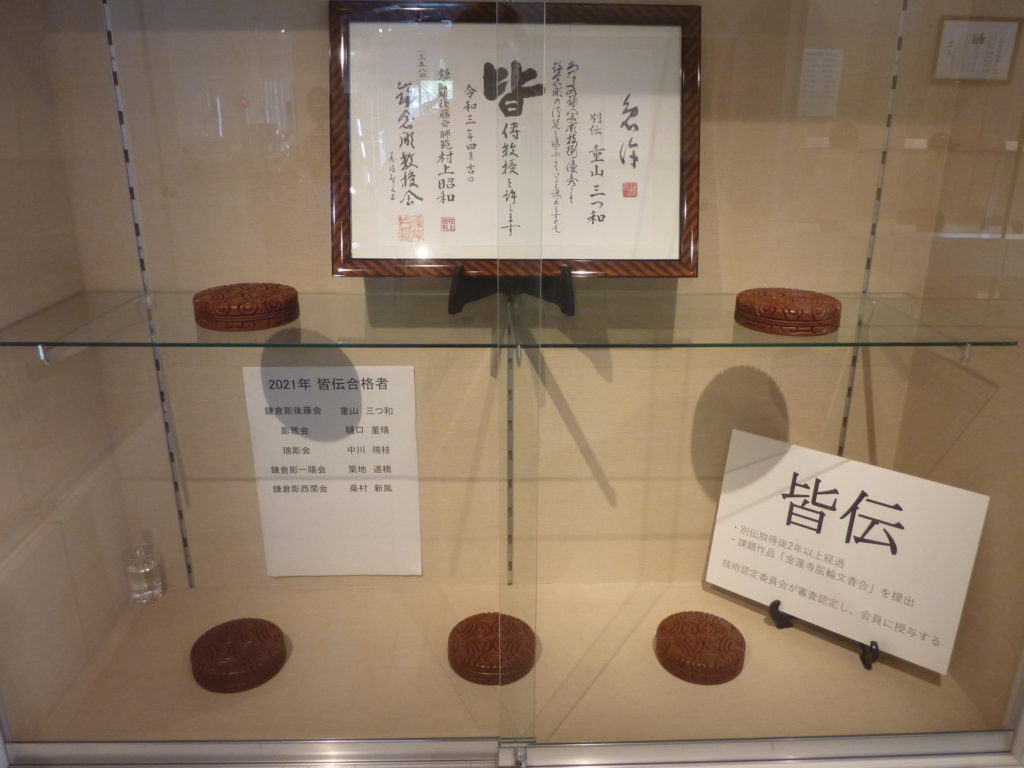 免許
別伝 重山 三つ和
皆傳教授を許します
令和三年四月吉日
鎌倉彫後藤会師範 村上昭和
鎌倉彫教授会
2021年 皆伝合格者
鎌倉彫後藤会 重山 三つ和
彫雅会 樋口 菫晴
瑞彫会 中川 瑞桂
鎌倉彫一陽会 築地 道橋
鎌倉彫西蘭会 桑村 新風
皆伝
・別伝取得後2年以上経過
・課題作品「金蓮寺屈輪文香合」を提出
技術認定委員会が審査認定し、会員に授与する